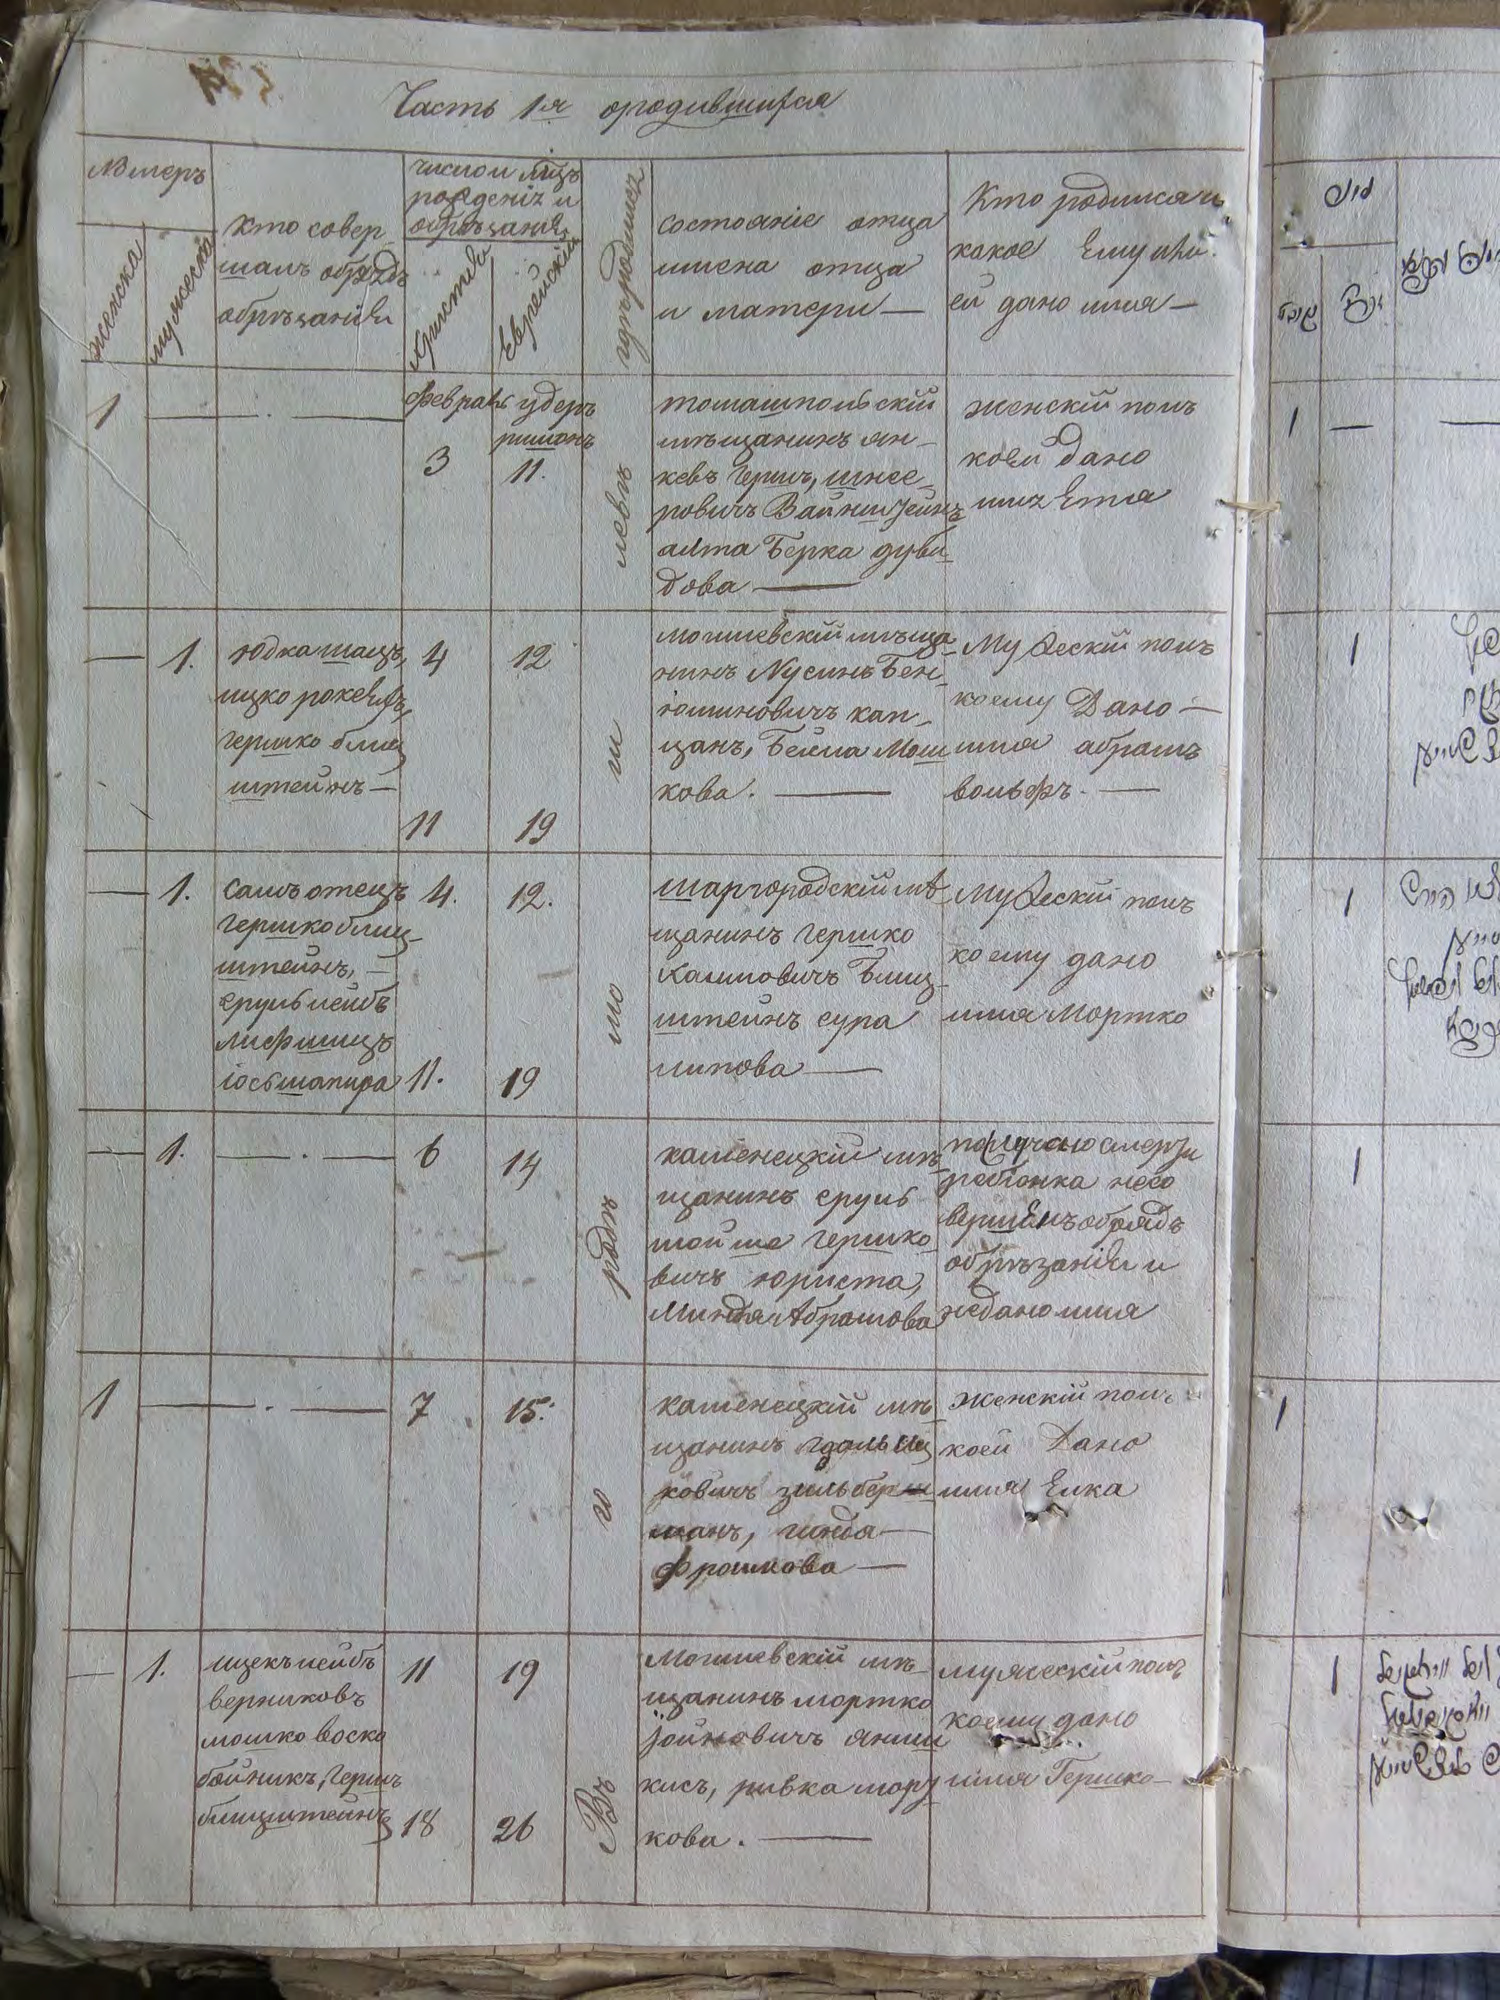 Часть 1я ородившихся
Номеръ
женска
мужеска
кто совер
шалъ обрядъ
обрѣзанія
число и мѣцъ
рожденія и
обрѣзанія
Христіа
Еврейскій
гдѣ родился
состояніе отца
имена отца
и матери —
Кто родился и
какое ему или
ей дано имя —
1 — . —
февраль
3
удеръ
ришонъ
11.
томашпольскій
мѣщанинъ ян-
кевъ герш, шнее-
ровичъ Вайнштейнъ
алта Берка дуви-
дова —
женскій полъ
коей дано
имя Ета
— 1.
юдка шацъ,
ицко
гершко блиц
штейнъ —
4 12
11 19
могилевскій мѣща-
нинъ Нусинъ Бен-
юминовичъ кап-
цанъ, Бейла Мош
кова. —
Мужескій полъ
коему Дано —
имя абрамъ
вольфъ. —
— 1.
самъ отецъ
гершко блиц-
штейнъ, —
сруль лейбъ
лифшицъ
іось шапира
4. 12.
11. 19
шаргородскій мѣ
щанинъ гершко
Калмовичъ Блиц-
штейнъ сура
липова —
Мужескій полъ
коему дано
имя Мортко
— 1. — . —
6 14
каменецкій мѣ-
щанинъ сруль
мойше гершко-
вичъ юриста,
Миндя Абрамова
по случаю смерти
ребіонка несо
вершенъ обрядъ
обрѣзанія и
недано имя
1 — . —
7 15.
каменецкій мѣ-
щанинъ гдаль Иц
ковичъ зильбер
манъ, гинда —
Фроимова —
женскій полъ
коей Дано
имя Елка
— 1.
ицекъ лейбъ
верниковъ
мошко воско
бойникъ, гершъ
блицштейнъ
11 19
18 26
Могилевскій мѣ-
щанинъ мортко
іойновичъ
кисъ, ривка морт
кова. —
мужескій полъ
коему дано
имя Гершко —
Въ
и
родѣ
мо
ги
левѣ
1
1
1
1
1
1